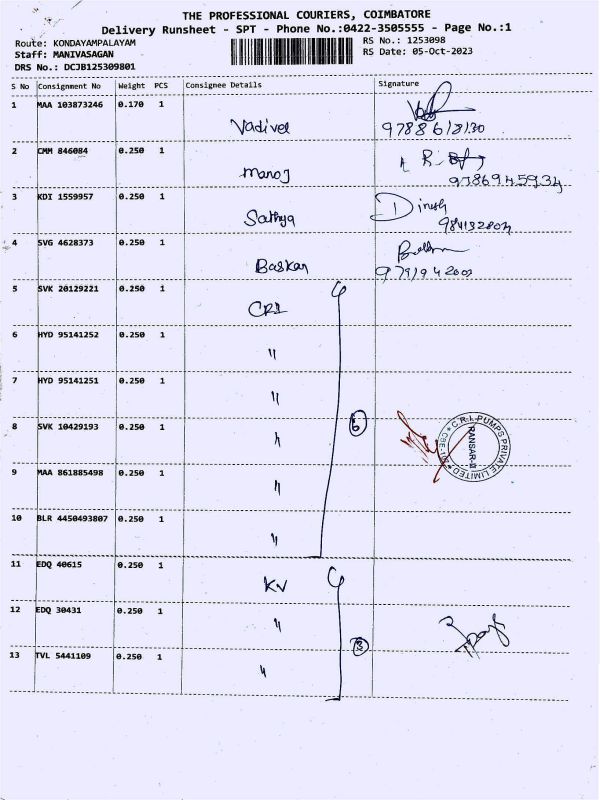 THE PROFESSIONAL COURIERS, COIMBATORE
Delivery Runsheet - SPT - Phone No.:0422-3505555 - Page No.:1
Route: KONDAYAMPALAYAM
Staff: MANIVASAGAN
DRS No.: DCJB125309801
RS No.: 1253098
RS Date: 05-Oct-2023
S No Consignment No Weight PCS Consignee Details Signature
1 MAA 103873246 0.170 1 Vadivel
2 CMM 846084 0.250 1 Manoj
9786945934
3 KDI 1559957 0.250 1 Sathya Dinesh
4 SVG 4628373 0.250 1 Baskar
5 SVK 20129221 0.250 1 CRI
6 HYD 95141252 0.250 1 "
7 HYD 95141251 0.250 1 "
8 SVK 10429193 0.250 1 " 6
C.R.I. PUMPS PRIVATE LIMITED
9 MAA 861885498 0.250 1 "
10 BLR 4450493807 0.250 1 "
11 EDQ 40615 0.250 1 KV
12 EDQ 30431 0.250 1 " 3
13 TVL 5441109 0.250 1 "